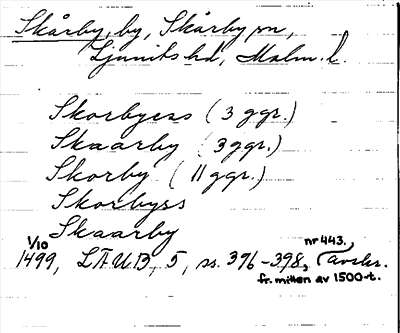 Skårby, by, Skårby sn,
Ljunits hd, Malm. l.
Skorbyess (3 ggr.)
Skaarby (3 ggr.)
Skorby (11 ggr.)
Skorbyss
Skaarby
1/10 nr 443.
1499, LÄUB, 5, ss. 396-398, (avskr.
fr. mitten av 1500-t.